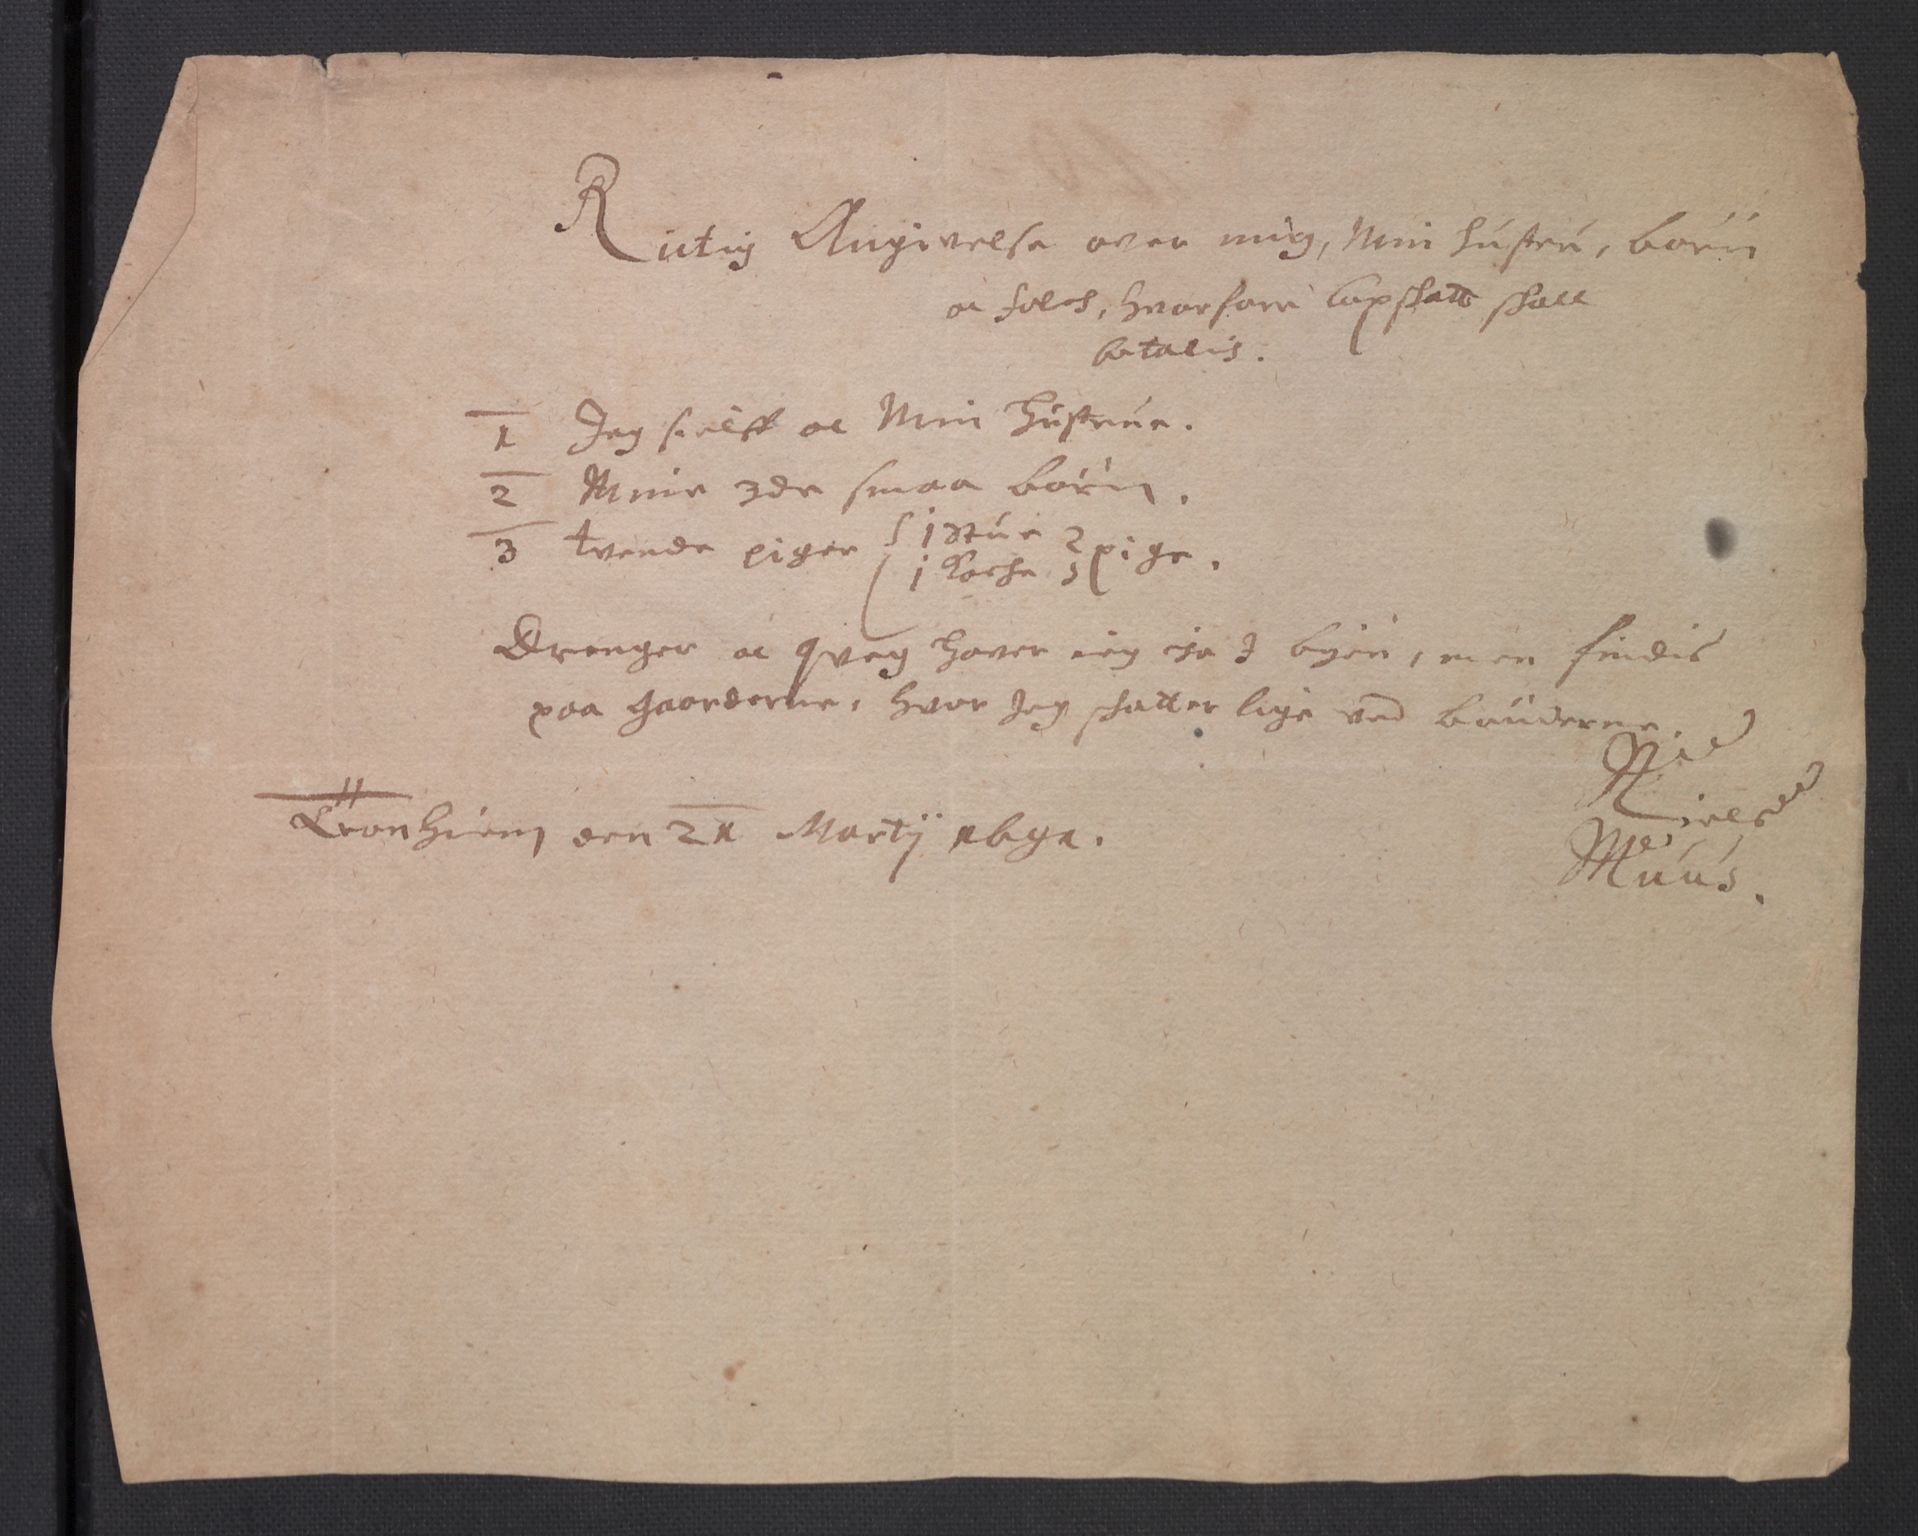 Rictig Angivelse over mig, Min hústrú, børn
oc folch, hvorfore Copschatt schall
betalis.
1 Jeg sielff oc Min Hústrúe.
2 Mine 3de smaa børn.
3 tvende piger { 1 stúe } pige.
1 Kocke
Drenger oc qveg haver ieg icke I byen, men findis
paa gaarderne, hvor Jeg schatter lige ved bønderne.
Tronhiem den 21 Martij 1691.
Niels
Múús.